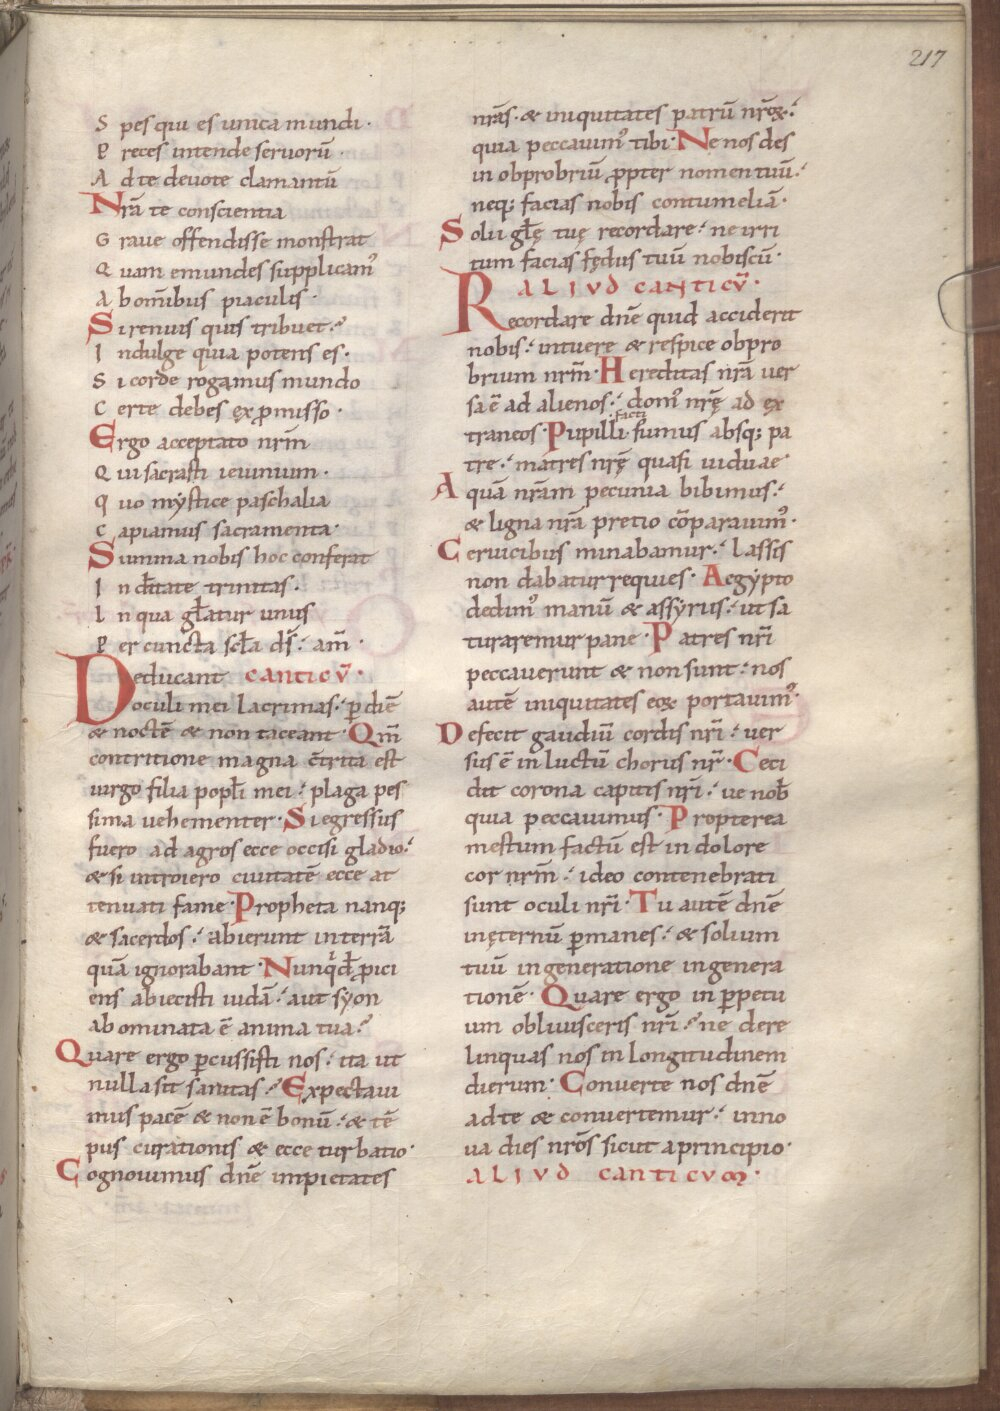 217
S pes qui es unica mundi·
P reces intende seruorū·
A d te deuote clamantū
Nrā te conscientia
G raue offendisse monstrat
Q uam emundes supplicam᾿
A bom̄ibus piaculis·
Si renuis quis tribuet·
I ndulge quia potens es·
S i corde rogamus mundo
C erte debes ęx ꝓmisso·
Ergo acceptato nrm̄
Q ui sacrasti ieiunium·
Q uo mystice paschalia
C apiamus sacramenta·
Summa nobis hoc conferat
I n dītate trinitas·
I n qua głatur unus
P er cuncta scła ds̄· am̄·
Deducant canticū·
oculi mei lacrimas· ꝑ diē
& noctē & non taceant· Qm̄
contritione magna c̄trita est
uirgo filia popłi mei· plaga pes
sima uehementer· Si egressus
fuero ad agros ecce occisi gladio·
& si introiero ciuitatē ecce at
tenuati fame· Propheta nanq;
& sacerdos· abierunt in terrā
quā ignorabant· Nunqd ꝓici
ens abiecisti iudā· aut syon
abominata ē anima tua·
Quare ergo ꝑcussisti nos· ita ut
nulla sit sanitas· Expectaui
mus pacē & non ē bonū· & tē
pus curationis & ecce turbatio·
Cognouimus dnē impietates
nrās· & iniquitates patrū nrōꝝ·
quia peccauim᾿ tibi· Ne nos des
in obprobriū ꝓpter nomen tuū·
neq; facias nobis contumeliā·
Solii głę tuę recordare· ne irri
tum facias fędus tuū nobiscū·
ALIVD CANTICV̄·
Recordare dnē quid acciderit
nobis· intuere & respice obpro
brium nrm̄· Hereditas nrā uer
sa ē ad alienos· dom᾿ nrę̄ ad ex
traneos· Pupilli facti sumus absq; pa
tre· matres nrę̄ quasi uiduae·
Aquā nrām pecunia bibimus·
& ligna nrā pretio cōparauim᾿·
Ceruicibus minabamur· lassis
non dabatur requies· Aegypto
dedim᾿ manū & assyriis· ut sa
turaremur pane· Patres nrī
peccauerunt & non sunt· nos
autē iniquitates eoꝝ portauim᾿·
Defecit gaudiū cordis nrī· uer
sus ē in luctū chorus nr̄· Ceci
dit corona capitis nrī· ue nob̄
quia peccauimus· Propterea
mestum factū est in dolore
cor nrm̄· ideo contenebrati
sunt oculi nrī· Tu autē dnē
in ęternū ꝑmanes· & solium
tuū in generatione in genera
tionē· Quare ergo in ꝑpetu
um obliuisceris nrī· ne dere
linquas nos in longitudinem
dierum· Conuerte nos dnē
ad te & conuertemur· inno
ua dies nrōs sicut a principio·
ALIVD CANTICVM·